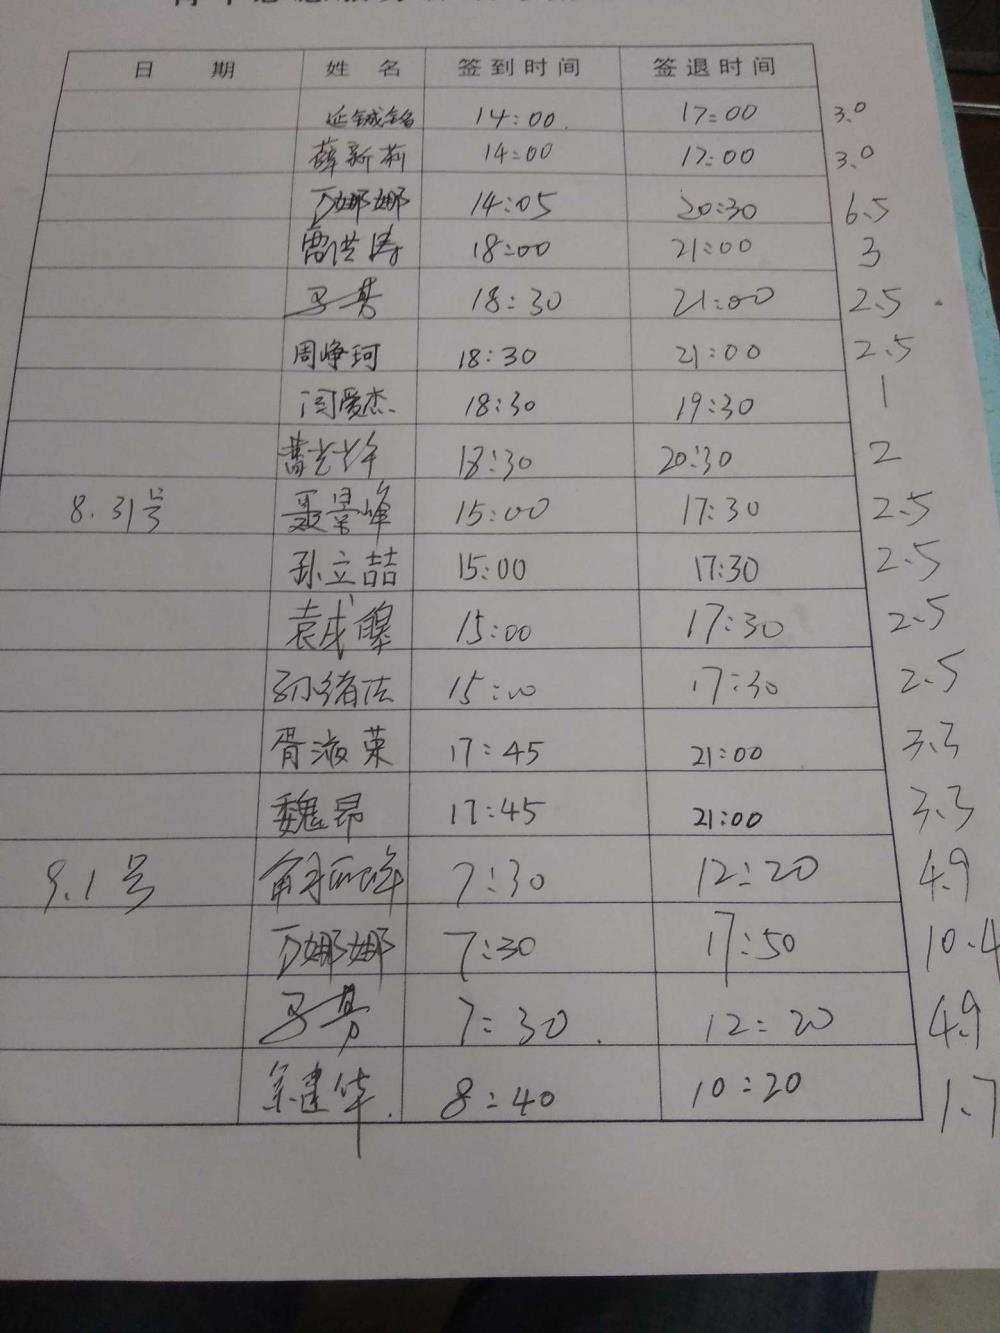 日 期 姓 名 签到时间 签退时间
延铖铭 14:00 17:00 3.0
薛新莉 14:00 17:00 3.0
娜娜 14:05 20:30 6.5
雷洪涛 18:00 21:00 3
18:30 21:00 2.5
周峥珂 18:30 21:00 2.5
闫爱杰 18:30 19:30 1
18:30 20:30 2
8.31号 聂景峰 15:00 17:30 2.5
孙立喆 15:00 17:30 2.5
15:00 17:30 2.5
孙绪法 15:00 17:30 2.5
胥淑荣 17:45 21:00 3.3
魏昂 17:45 21:00 3.3
9.1号 7:30 12:20 4.9
娜娜 7:30 17:50 10.4
7:30 12:20 4.9
建华 8:40 10:20 1.7